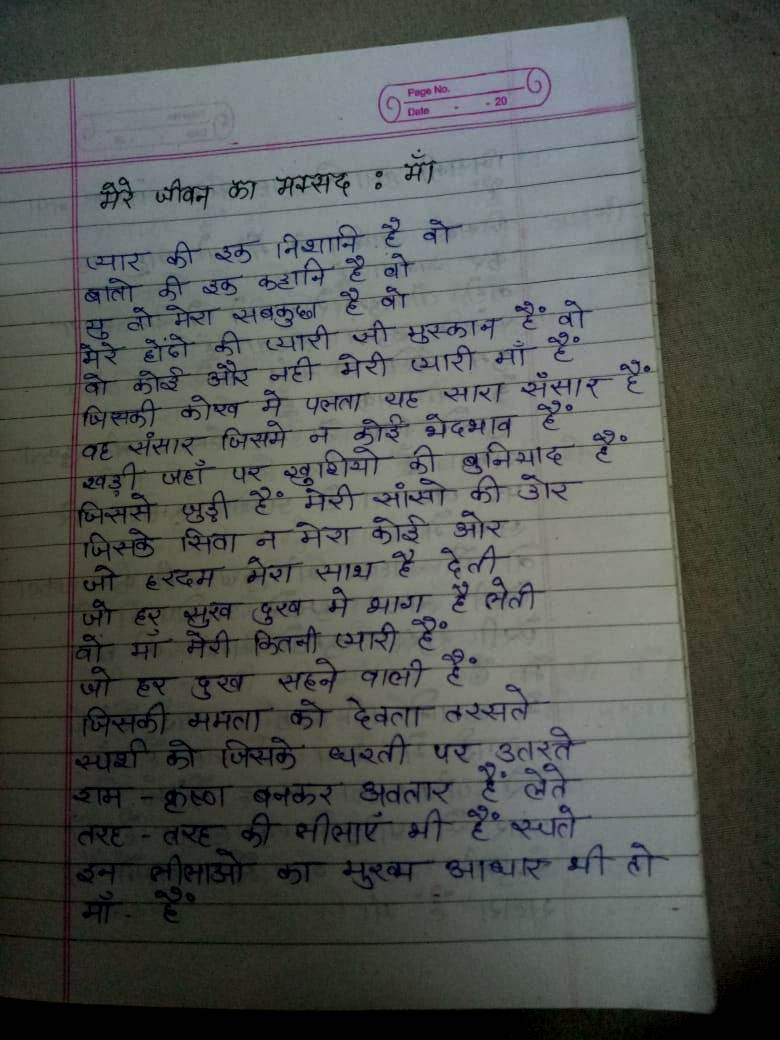 Page No.
Date - - 20
मेरे जीवन का मक्सद : माँ
प्यार की इक निशानि है वो
बातो की इक कहानि है वो
सु वो मेरा सबकुछ है वो
मेरे होंठो की प्यारी सी मुस्कान हैं वो
वो कोई और नही मेरी प्यारी माँ हैं
जिसकी कोख मे पलता यह सारा संसार हैं
वह संसार जिसमे न कोई भेदभाव हैं
खड़ी जहाँ पर खुशियो की बुनियाद हैं
जिससे जुड़ी हैं मेरी सांसो की डोर
जिसके सिवा न मेरा कोई ओर
जो हरदम मेरा साथ है देती
जो हर सुख दुख मे भाग है लेती
वो माँ मेरी कितनी प्यारी हैं
जो हर दुख सहने वाली हैं
जिसकी ममता को देवता तरसते
स्पर्श को जिसके धरती पर उतरते
राम - कृष्ण बनकर अवतार हैं लेते
तरह - तरह की लीलाएँ भी हैं रचते
इन लीलाओ का मुख्य आधार भी तो
माँ हैं